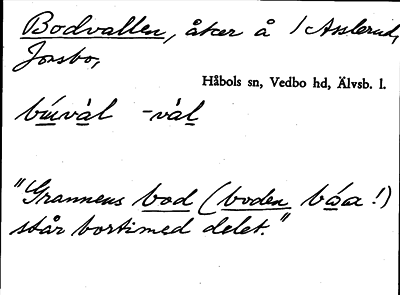 Bodvallen, åker å 1 Asslerud,
Jonsbo,
Håbols sn, Vedbo hd, Älvsb. l.
bu̇vàl -vàl
"Grannens bod (boden båa!)
står bortimed delet."